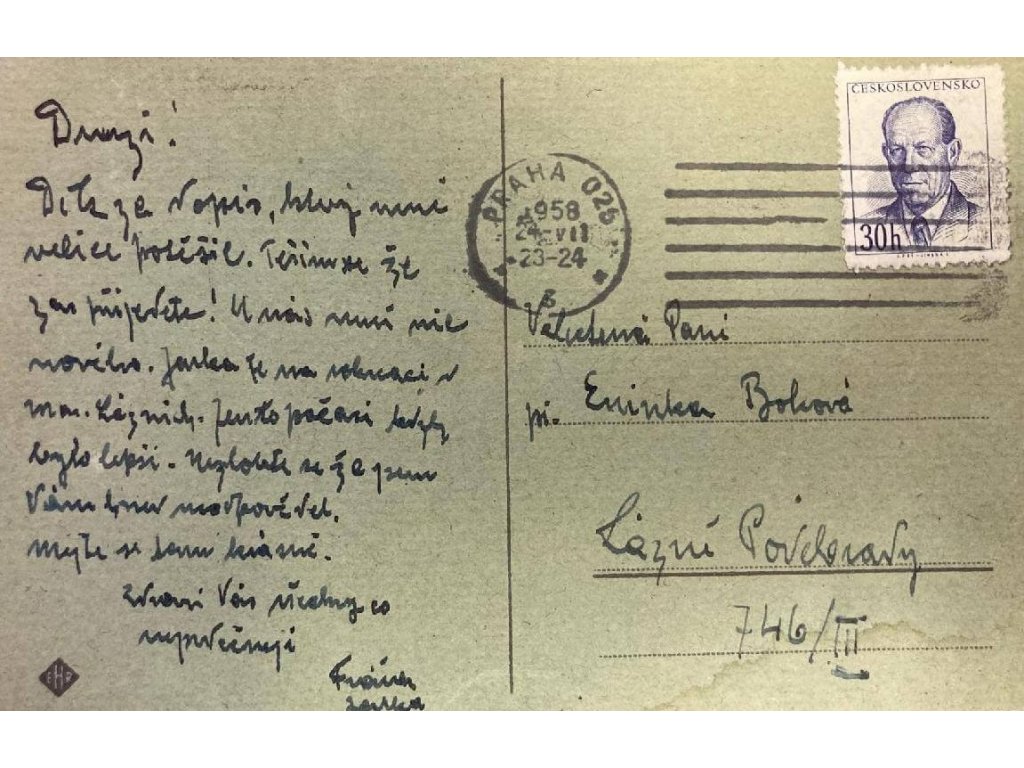 Drazí!
Dík za dopis, který mně
velice potěšil. Těším se že
zas přijedete! U nás není nic
nového. Jarka je na rekreaci v
Mar. Lázních. Jen to počasí kdyby
bylo lepší. Nezlobte se že jsem
Vám hned neodpověděl.
Mějte se tam krásně.
Zdraví Vás všechny co
nejsrdečněji
Fráňa
Jarka
EHP
PRAHA 025
1958
24.VII
23-24
ČESKOSLOVENSKO
30h
Vážená Paní
Eminka Boková
Lázně Poděbrady
746/III